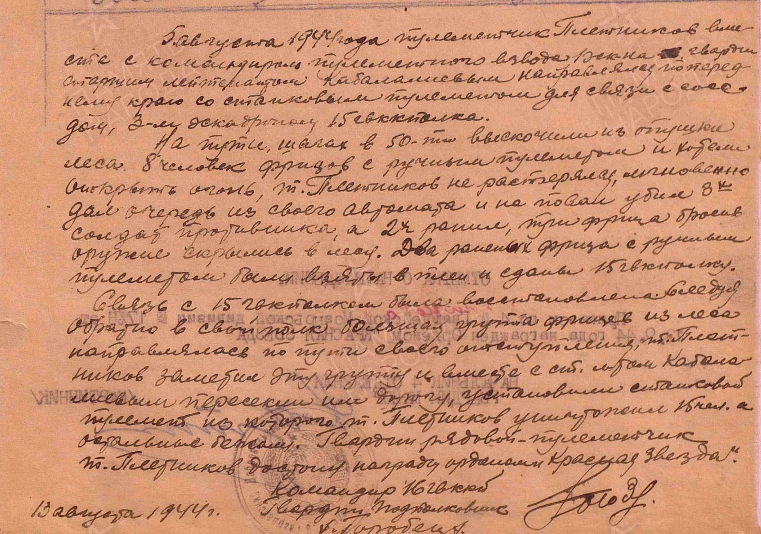 5 августа 1944 года пулеметчик Плетников вме-
сте с командиром пулеметного взвода 1 эск-на гвардии
старшим лейтенантом Кабалалиевым направлялся по перед-
нему краю со станковым пулеметом для связи с сосе-
дом, 3-м эскадроном 15 гвккполка.
На пути, шагах в 50-ти выскочили из опушки
леса 8 человек фрицев с ручным пулеметом и хотели
открыть огонь, т. Плетников не растерялся, мгновенно
дал очередь из своего автомата и на повал убил 3х
солдат противника, а 2х ранил, три фрица бросив
оружие скрылись в лесу. Два раненых фрица с ручным
пулеметом были взяты в плен и сданы 15 гвкполку.
Связь с 15 гвкполком была восстановлена. Следуя
обратно в свой полк большая группа фрицев из леса
направлялась по пути своего отступления, т. Плет-
ников заметил эту группу и вместе с ст. л-том Кабала-
лиевым пересекли им дорогу, установили станковой
пулемет из которого т. Плетников уничтожил 15 чел. а
остальные бежали. Гвардии рядовой-пулеметчик
т. Плетников достоин награды орденом "Красная Звезда".
Командир 16 гвккп
Гвардии Подполковник
13 августа 1944 г.